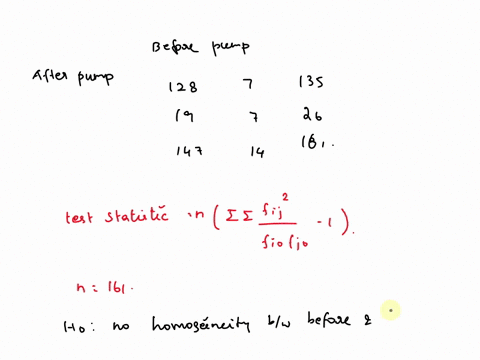 Before pump
After pump
128 7 135
19 7 26
147 14 161.
test statistic = n ( Σ Σ fij² / fio fjo - 1 ).
n = 161.
H0: no homogeineity b/w before &